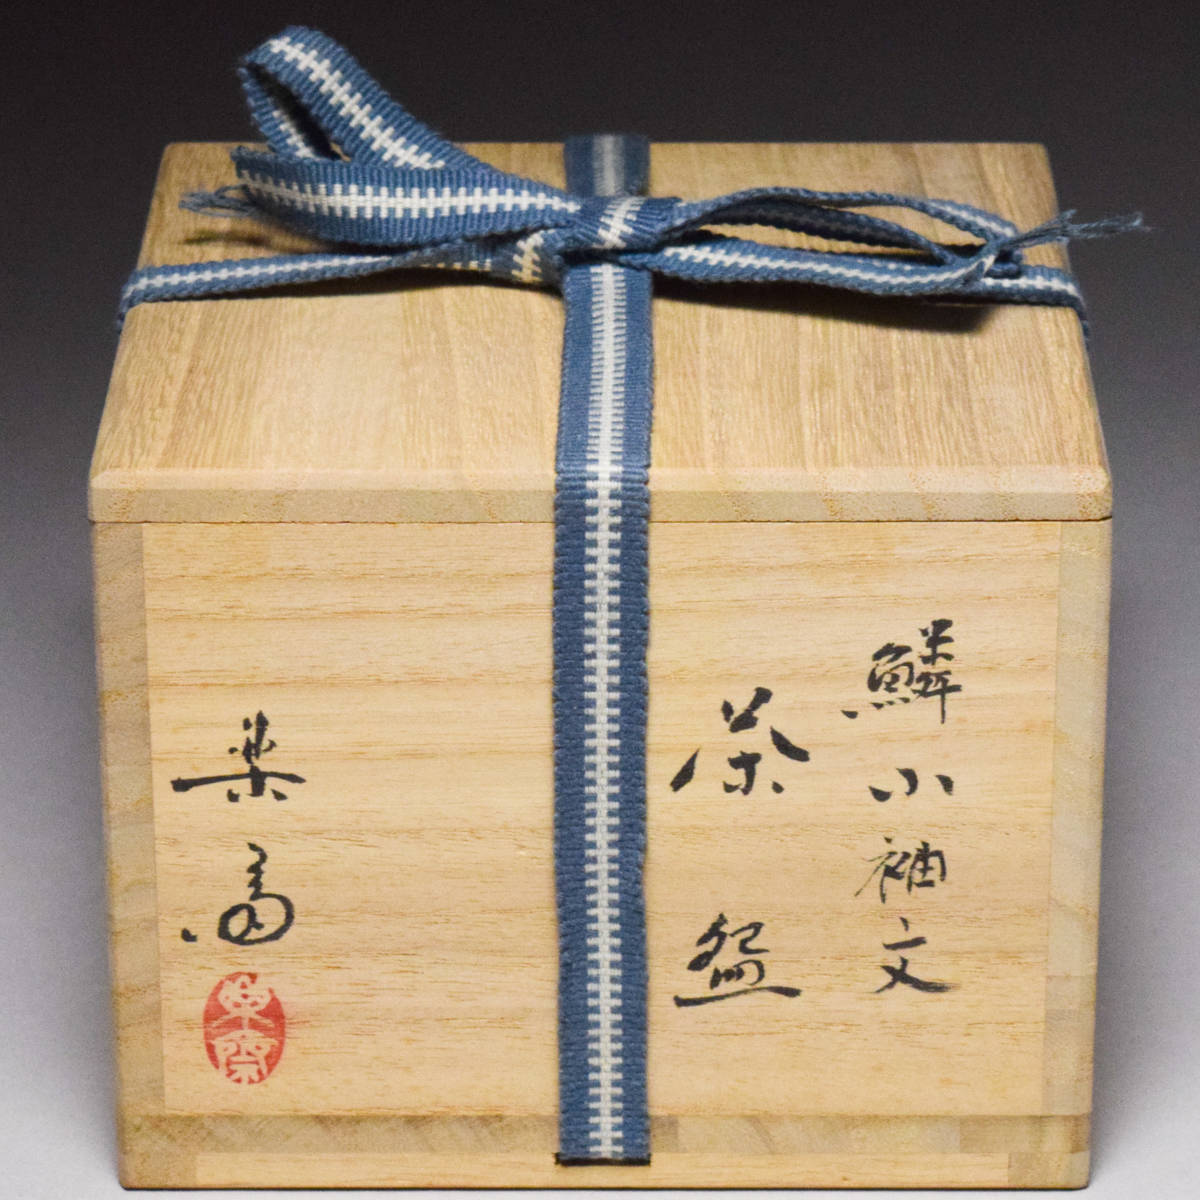 鱗小袖文
茶盌
楽斎